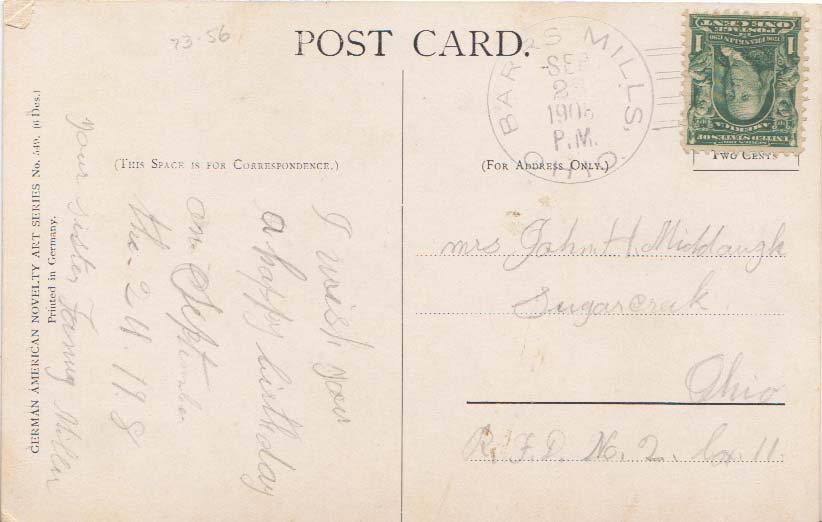 73-56
POST CARD.
BARRS MILLS, OHIO
SEP
2
190
P.M.
ONE CENT
POSTAGE
1 1
UNITED STATES OF
AMERICA
TWO CENTS
(THIS SPACE IS FOR CORRESPONDENCE.)
(FOR ADDRESS ONLY.)
I wish you
a happy birthday
on September
the
your sister Fanny Miller
mrs John H. Middaugh
Sugarcrak
Ohio
R. F. D. No. 2. bx. 11.
GERMAN AMERICAN NOVELTY ART SERIES No. 549. (6 Des.)
Printed in Germany.